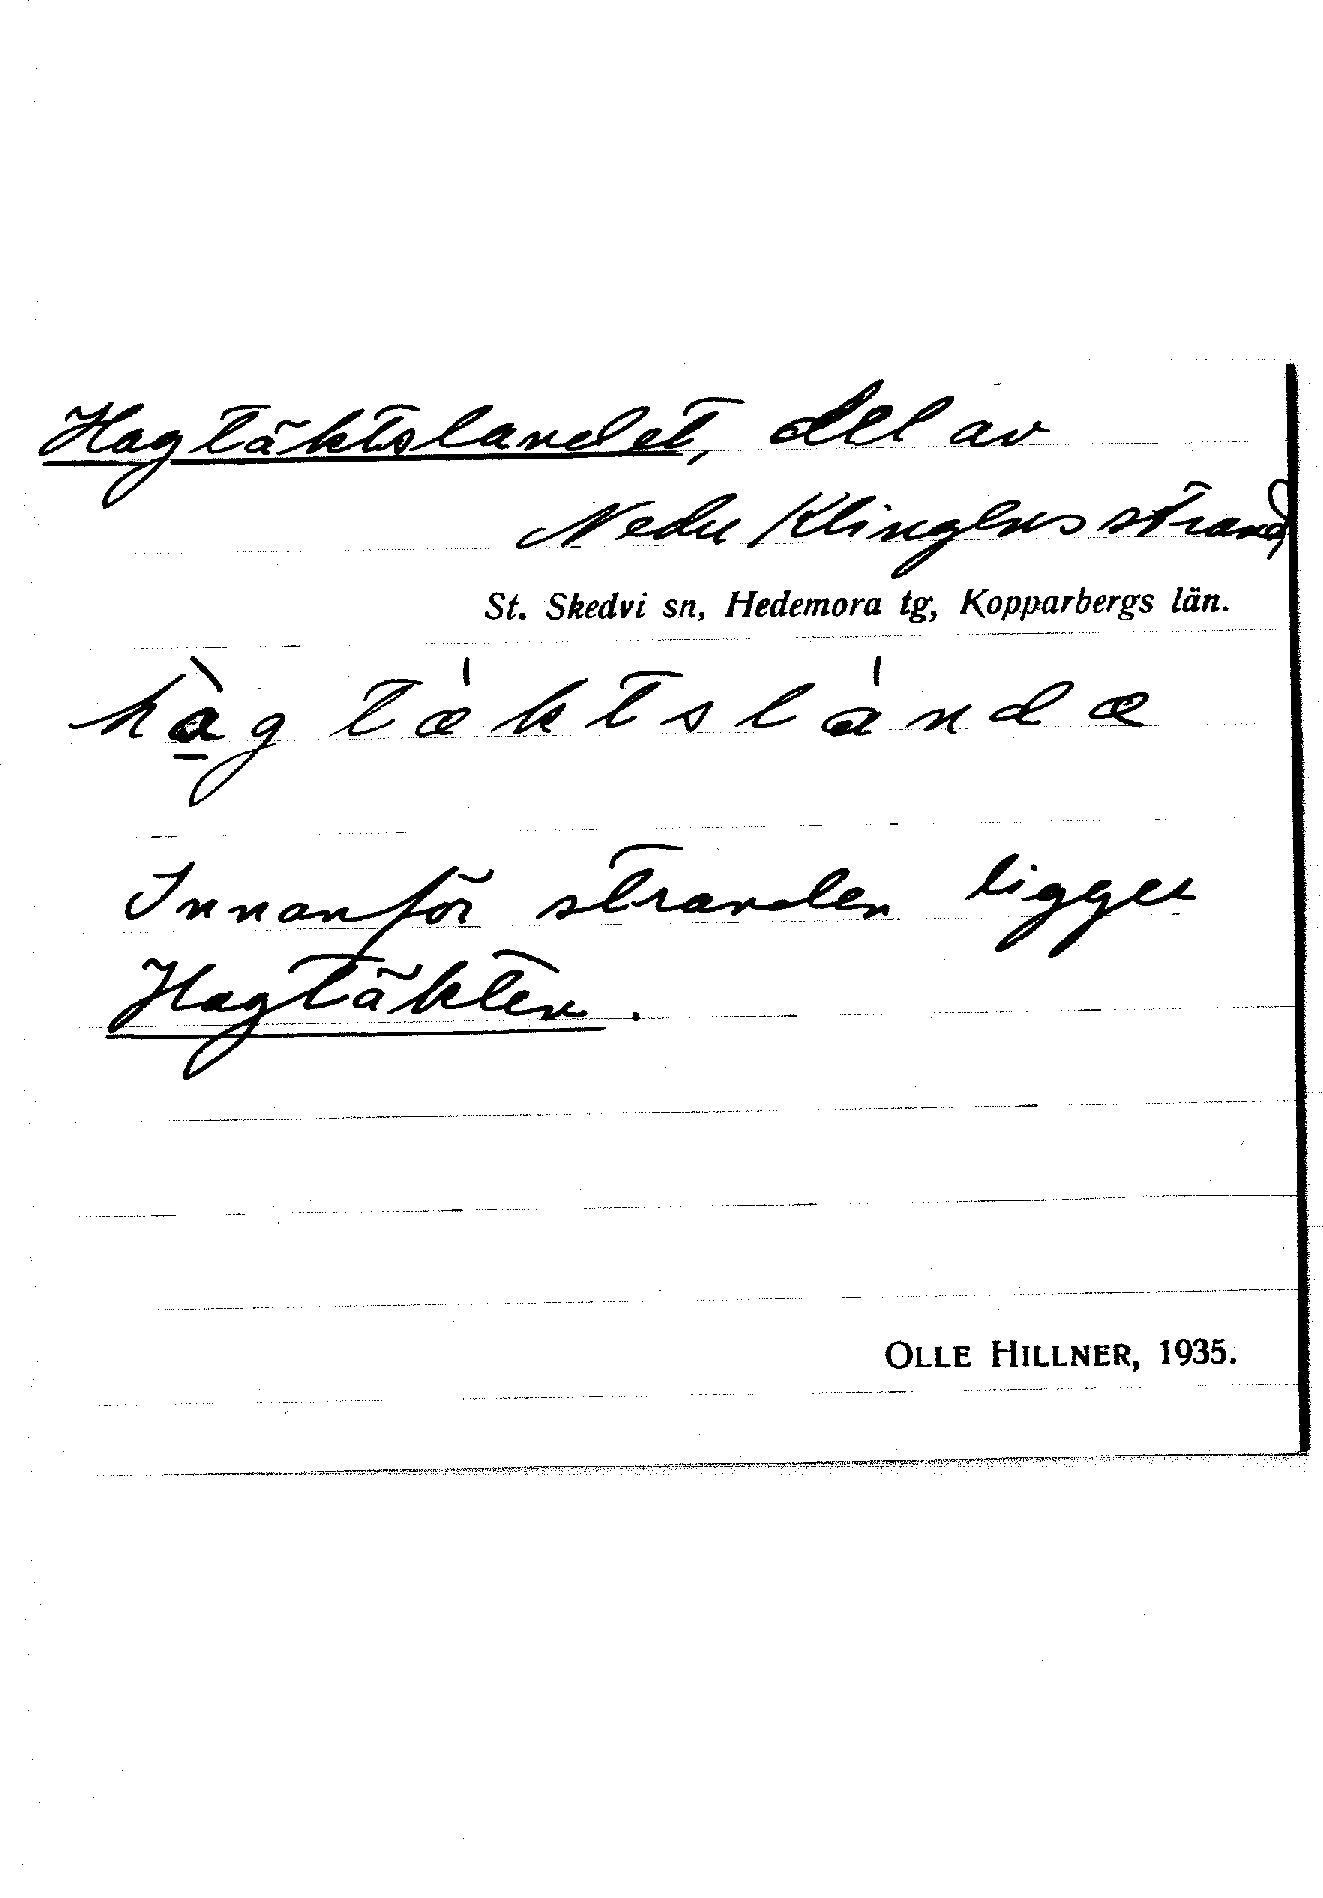 Hagtäktslandet, del av
Nedre Klingens strand,
St. Skedvi sn, Hedemora tg, Kopparbergs län.
hàgtæ'ktsla'ndæ
Innanför stranden ligger
Hagtäkten.
OLLE HILLNER, 1935.